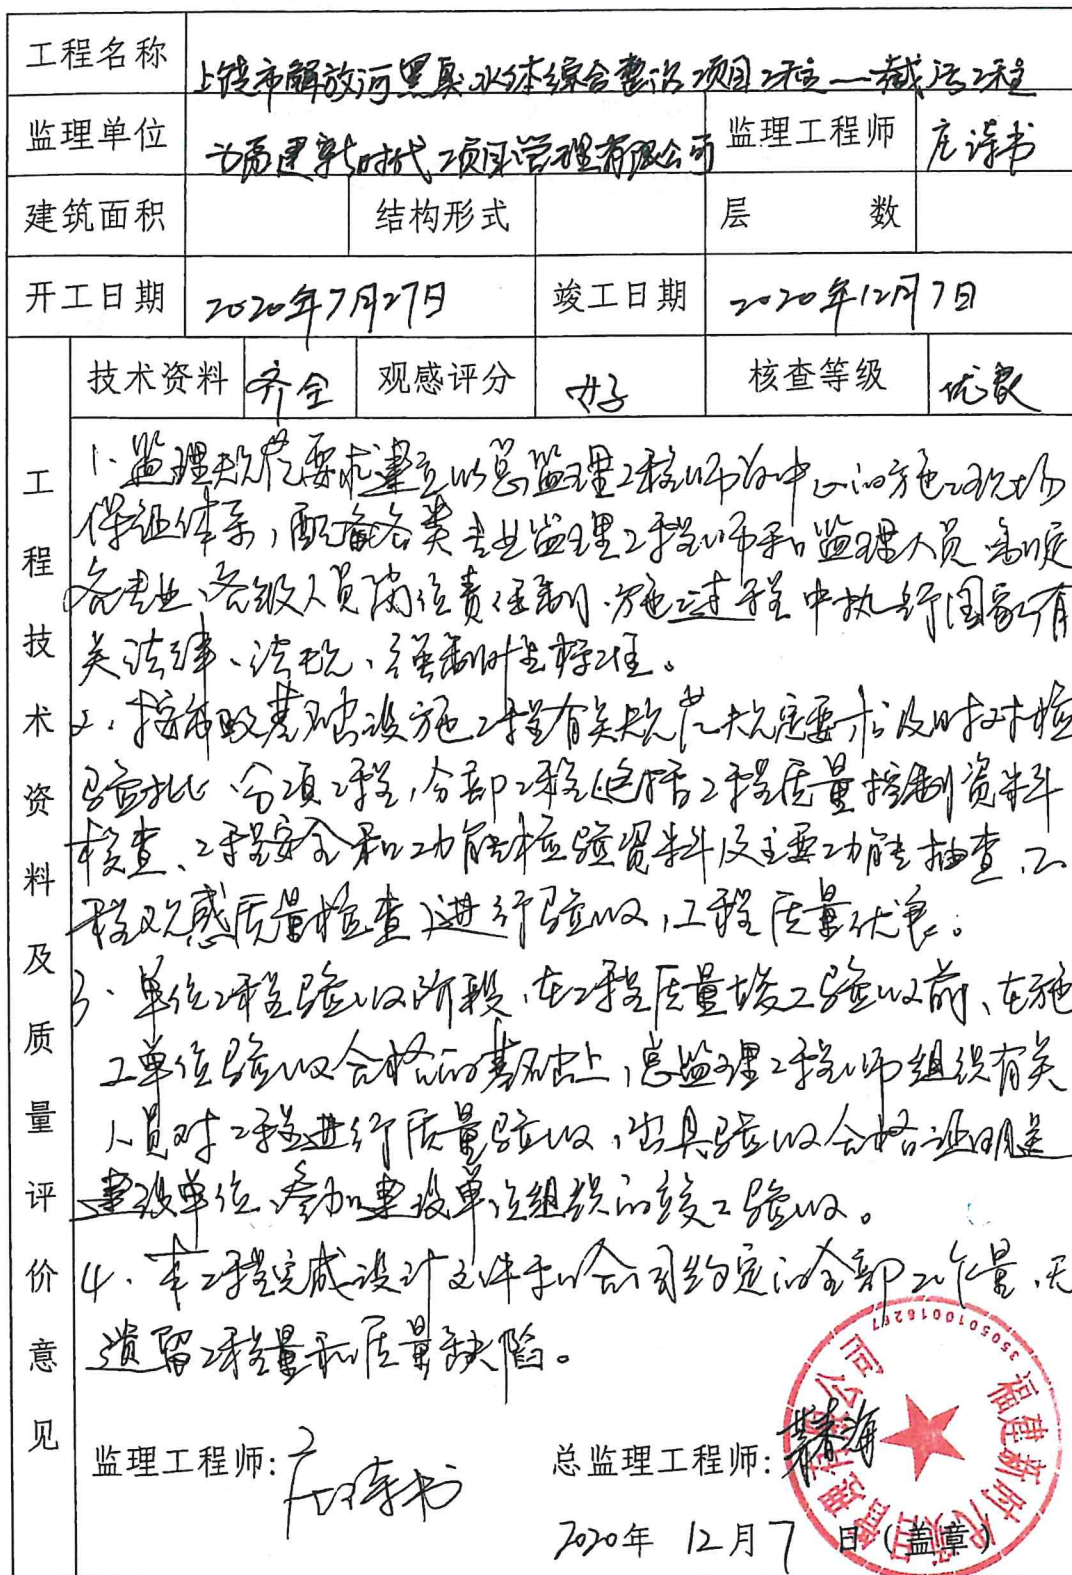 工程名称 上饶市解放河黑臭水体综合整治项目工程——截污工程
监理单位 福建新时代项目管理有限公司 监理工程师 庄诗书
建筑面积 结构形式 层数
开工日期 2020年7月27日 竣工日期 2020年12月7日
技术资料 齐全 观感评分 好 核查等级 优良
工程技术资料及质量评价意见
1、监理规范要求建立以总监理工程师为中心的施工现场
保证体系,配备各类专业监理工程师和监理人员,制定
各专业、各级人员岗位责任制。施工过程中执行国家有
关法律、法规、强制性标准。
2、按市政基础设施工程有关规范规定要求及时对检
验批、分项工程,分部工程(包括工程质量控制资料
核查、工程安全和功能检验资料及主要功能抽查、工
程观感质量检查)进行验收,工程质量优良。
3、单位工程验收阶段,在工程质量竣工验收前,在施
工单位验收合格的基础上,总监理工程师组织有关
人员对工程进行质量验收,出具验收合格证明送
建设单位、参加建设单位组织的竣工验收。
4、本工程完成设计文件和合同约定的全部工作量,无
遗留工程量和质量缺陷。
监理工程师:庄诗书 总监理工程师:
2020年 12月7日(盖章)
福建新时代项目管理有限公司